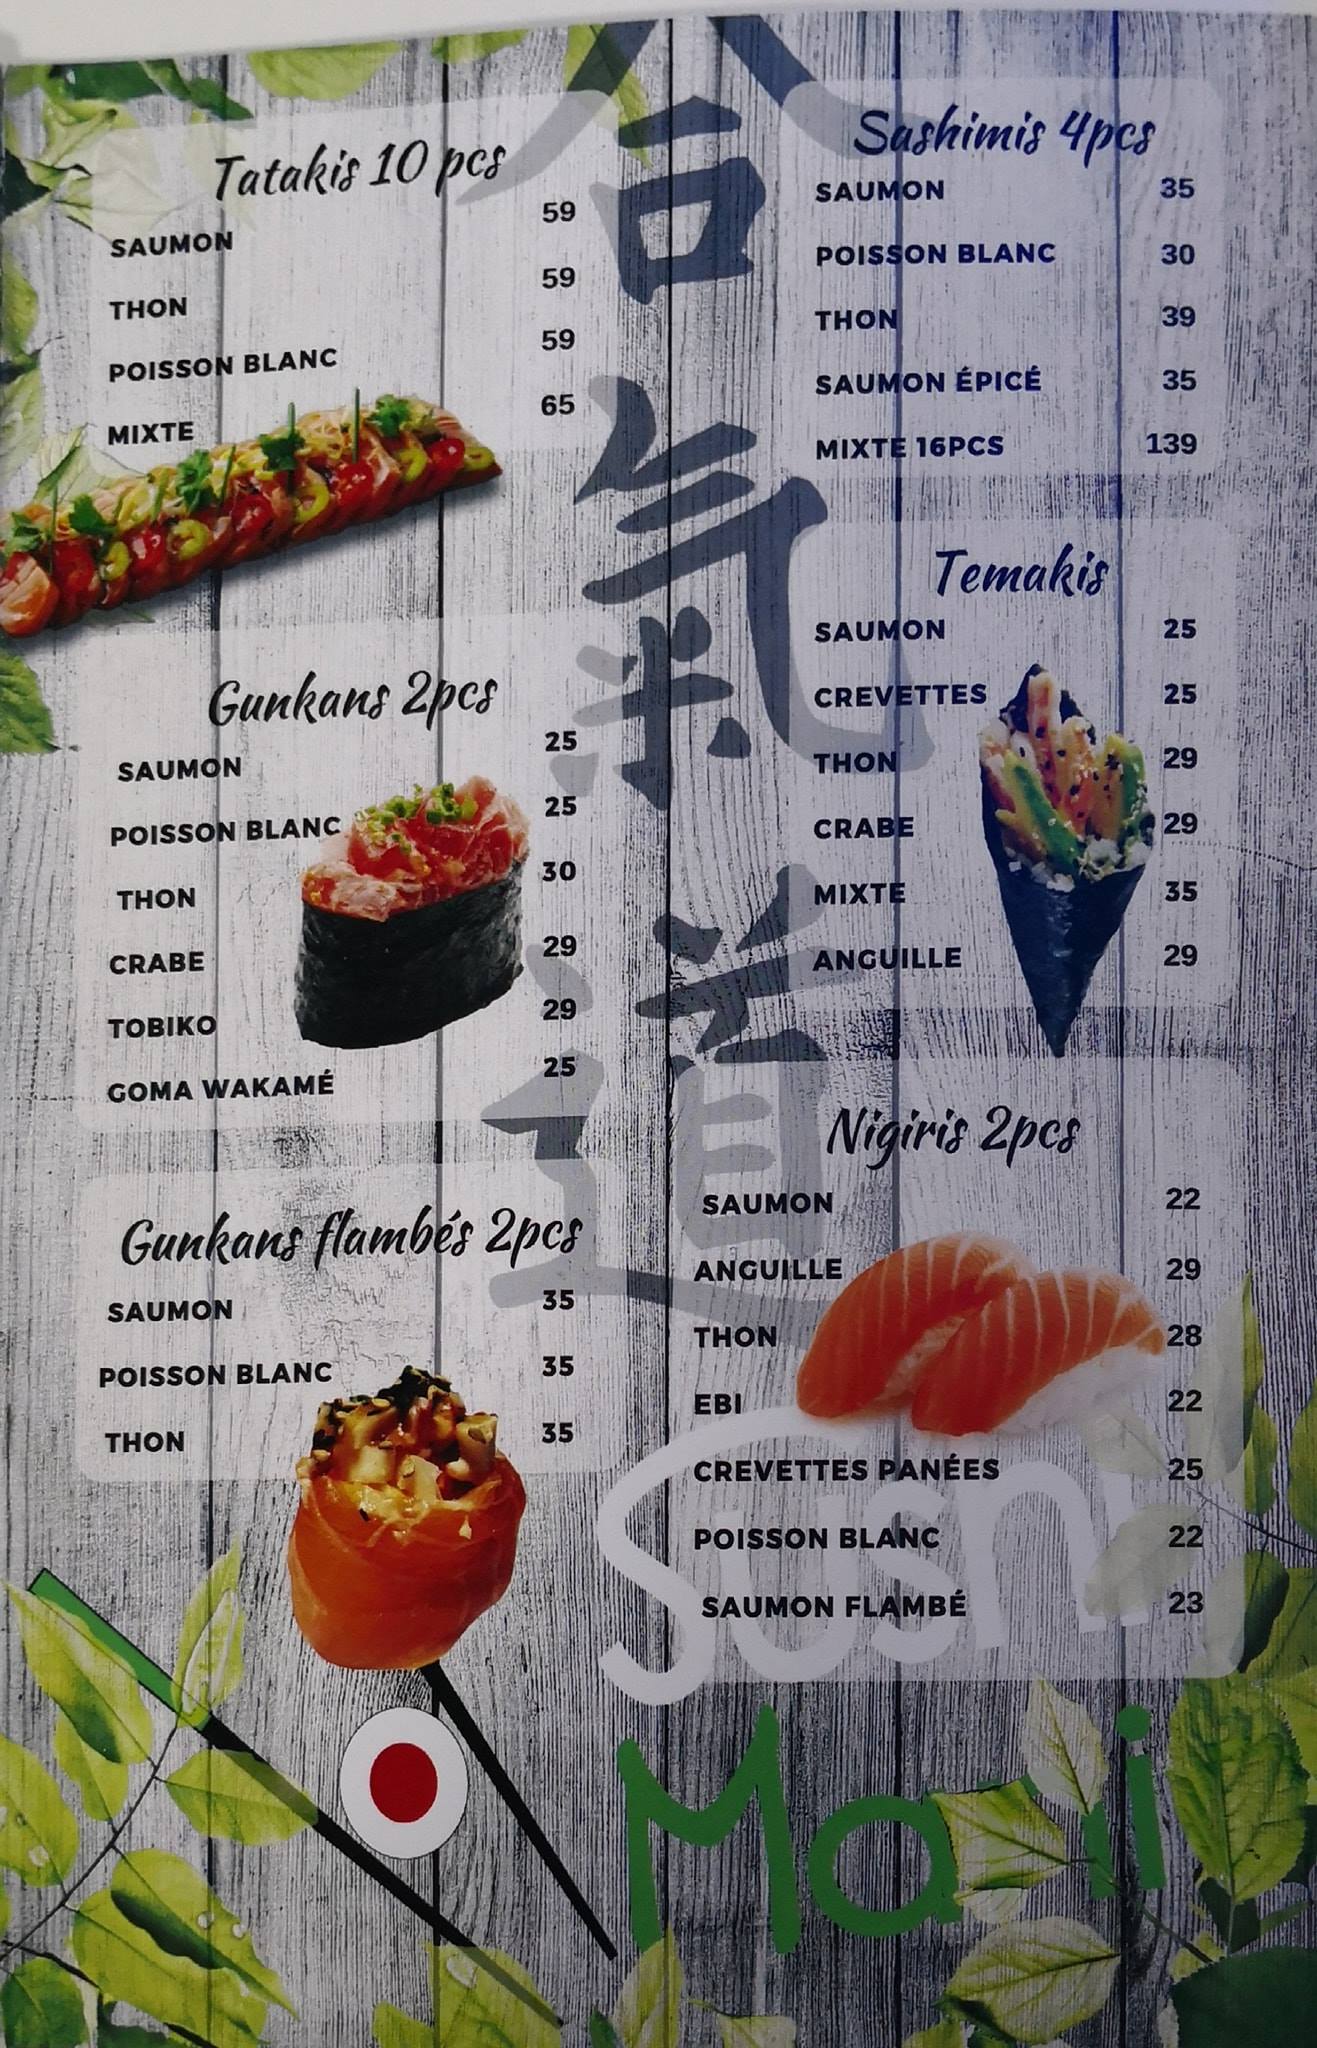 Tatakis 10 pcs
SAUMON 59
THON 59
POISSON BLANC 59
MIXTE 65
Gunkans 2pcs
SAUMON 25
POISSON BLANC 25
THON 30
CRABE 29
TOBIKO 29
GOMA WAKAMÉ 25
Gunkans flambés 2pcs
SAUMON 35
POISSON BLANC 35
THON 35
合
氣
道
Sashimis 4pcs
SAUMON 35
POISSON BLANC 30
THON 39
SAUMON ÉPICÉ 35
MIXTE 16PCS 139
Temakis
SAUMON 25
CREVETTES 25
THON 29
CRABE 29
MIXTE 35
ANGUILLE 29
Nigiris 2pcs
SAUMON 22
ANGUILLE 29
THON 28
EBI 22
CREVETTES PANÉES 25
POISSON BLANC 22
SAUMON FLAMBÉ 23
Sushi